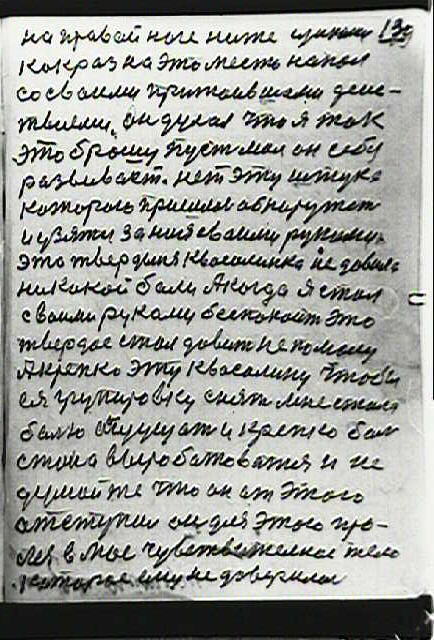 на правай ноге ниже 139
как раз на это место напал
со своими притаившими дейс-
твиями, он думал что я так
это брошу пуст мол он себе
развивает. нет эту штуку
которого пришлос обнаружет
и узятся за ния сваими руками.
это твердыня квасалинка не давала
никакой боли. А когда я стал
сваими руками беспокоит это
твердое стал давит не помалу
А крепко эту квасалину чтобы
ея групировку снят мне стала
болю слушат и крепко бол
стала выробатоватся и не
думайте что он от этого
отступил он для этого про-
лез в мое чувствителное тело
которое ему не доверилос